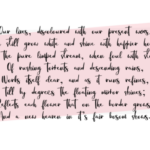 Our lives, discoloured with our present woes,
still grow white and shine with happier ho
the pure limpid stream, when foul with st
Of rushing torrents and descending rains,
Works itself clear, and as it runs refines,
till by degrees the floating mirror shines;
Reflects each flower that on the border grows
And a new heaven in it's fair bosom shows.